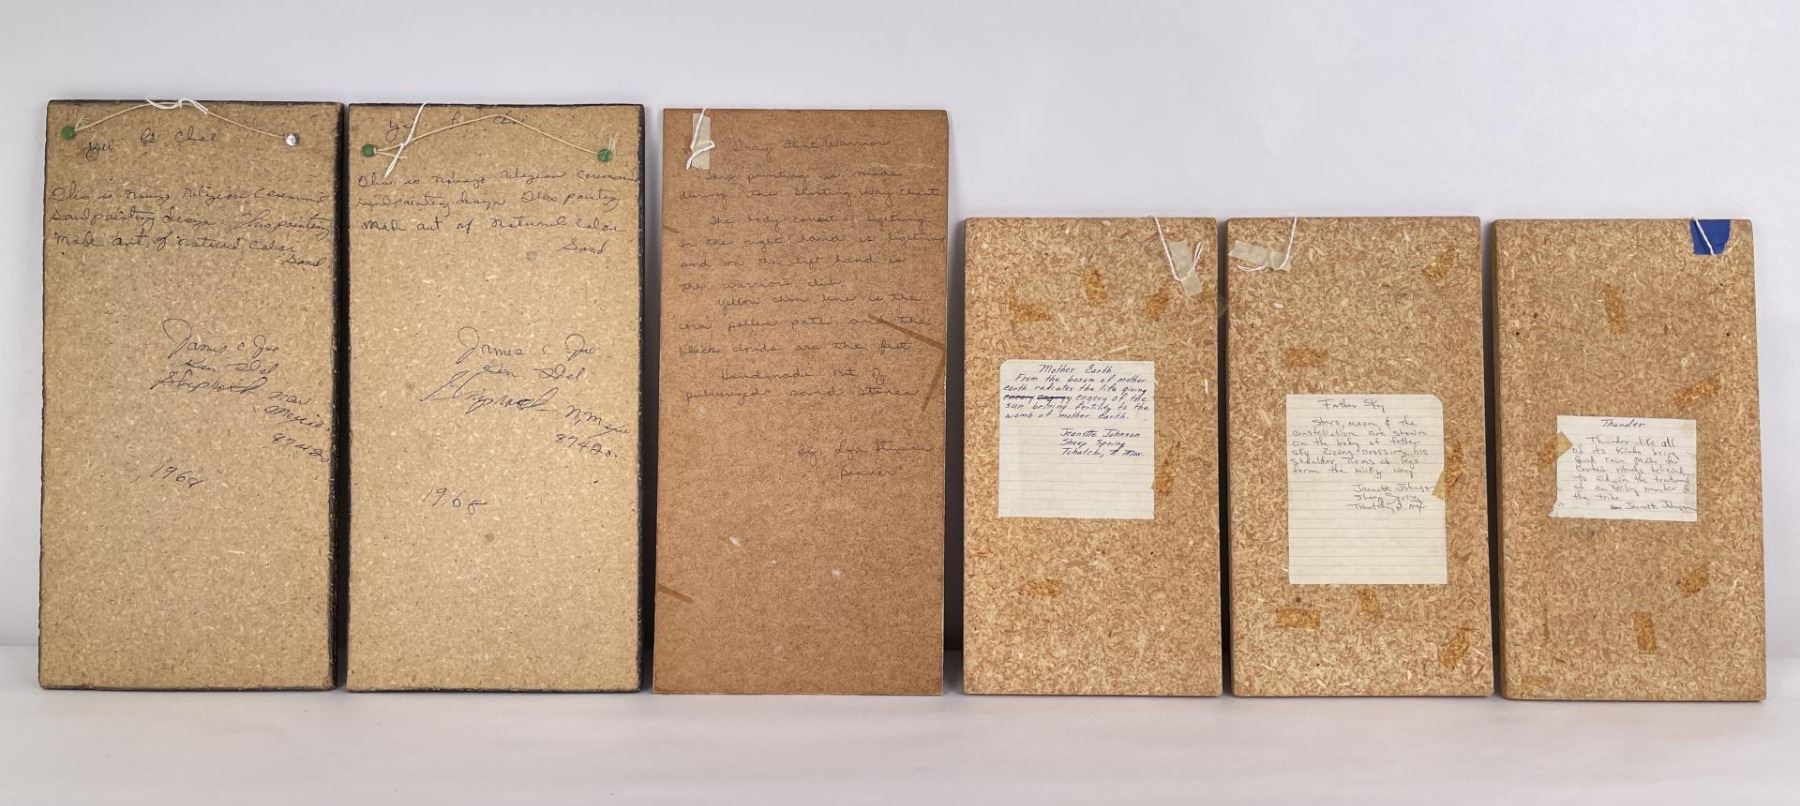 This is navajo religion Ceremonial
Sandpainting design This painting
Made out of natural Color
Sand
James C Joe
Gen Del
Shiprock New
Mexico
87420
This is navajo religion Ceremonial
sandpainting design This painting
Made out of natural Color
Sand
James C Joe
Gen Del
Shiprock N, Mexico
87420
196
Gray Flint Warrior
painting is made
during the Shooting Way Chant
The body consist of lightning
In the right hand is lightning
and on the left hand is
the warrior club
Yellow line is the
corn pollen path and the
black clouds are the feet
Handmade out of
pulverized sand stones
by
Mother Earth
From the bosom of mother
earth radiates the life giving
enegry of the
sun brining fertility to the
womb of mother earth.
Jeanette Johnson
Sheep Spring
Tohatchi, N. Mex.
Father Sky
Stars, moon, & the
constellation are shown
on the body of father
sky Zizag crossing his
shoulder, arms & legs
form the Milky Way
Jeanette Johnson
Sheep Spring
Tohatchi, N. Mex
Thunder
Thunder like all
of its kinds bring
good rain
certain rituals believed
to
the tribe
Jeanette Johnson